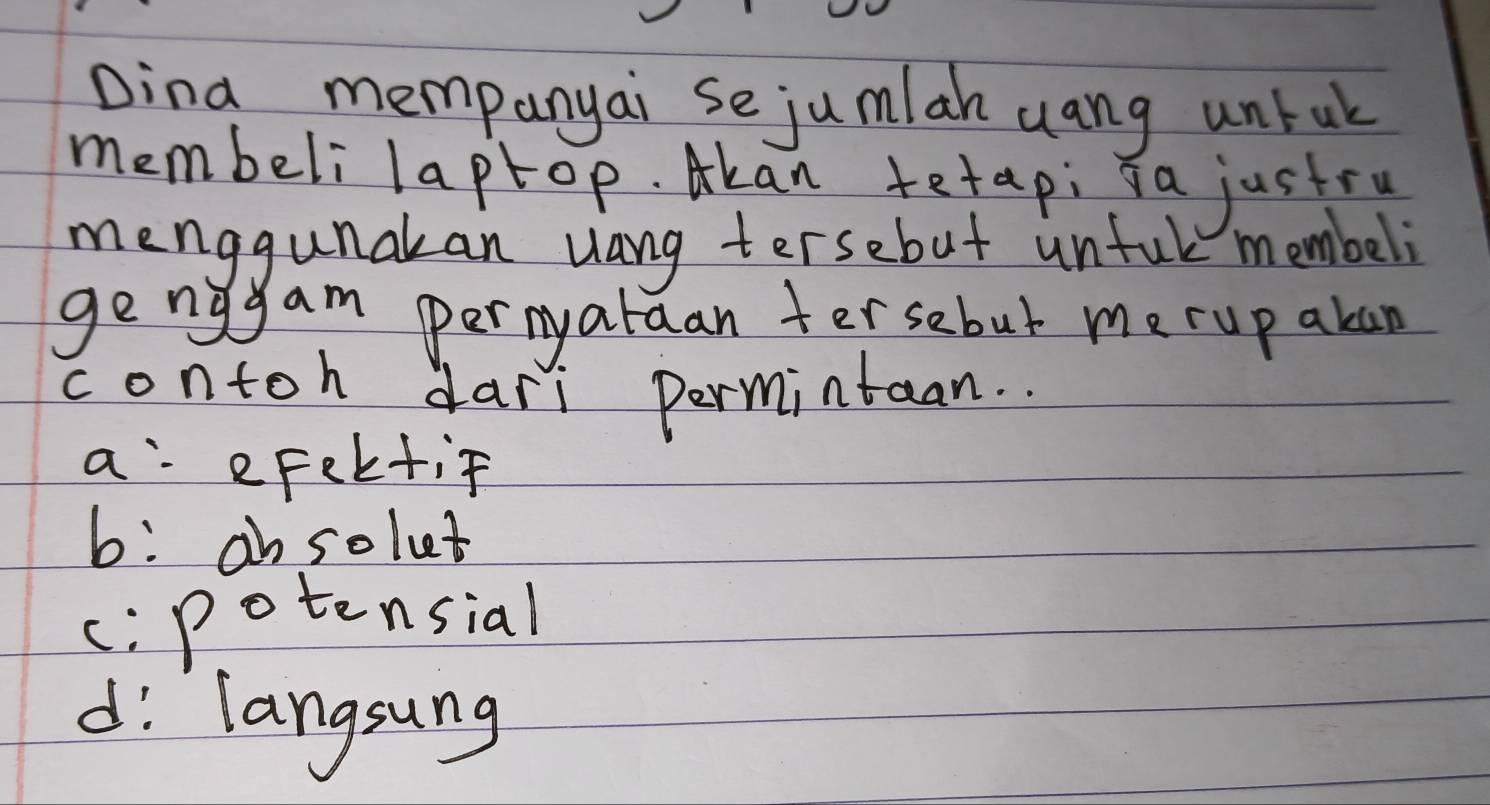 Dina mempunyai sejumlah uang untuk
membeli laptop. Akan tetapi ia justru
menggunakan uang tersebut untuk membeli
genggam pernyataan tersebut merupakan
contoh dari permintaan..
a: efektif
b: absolut
c: potensial
d: langsung